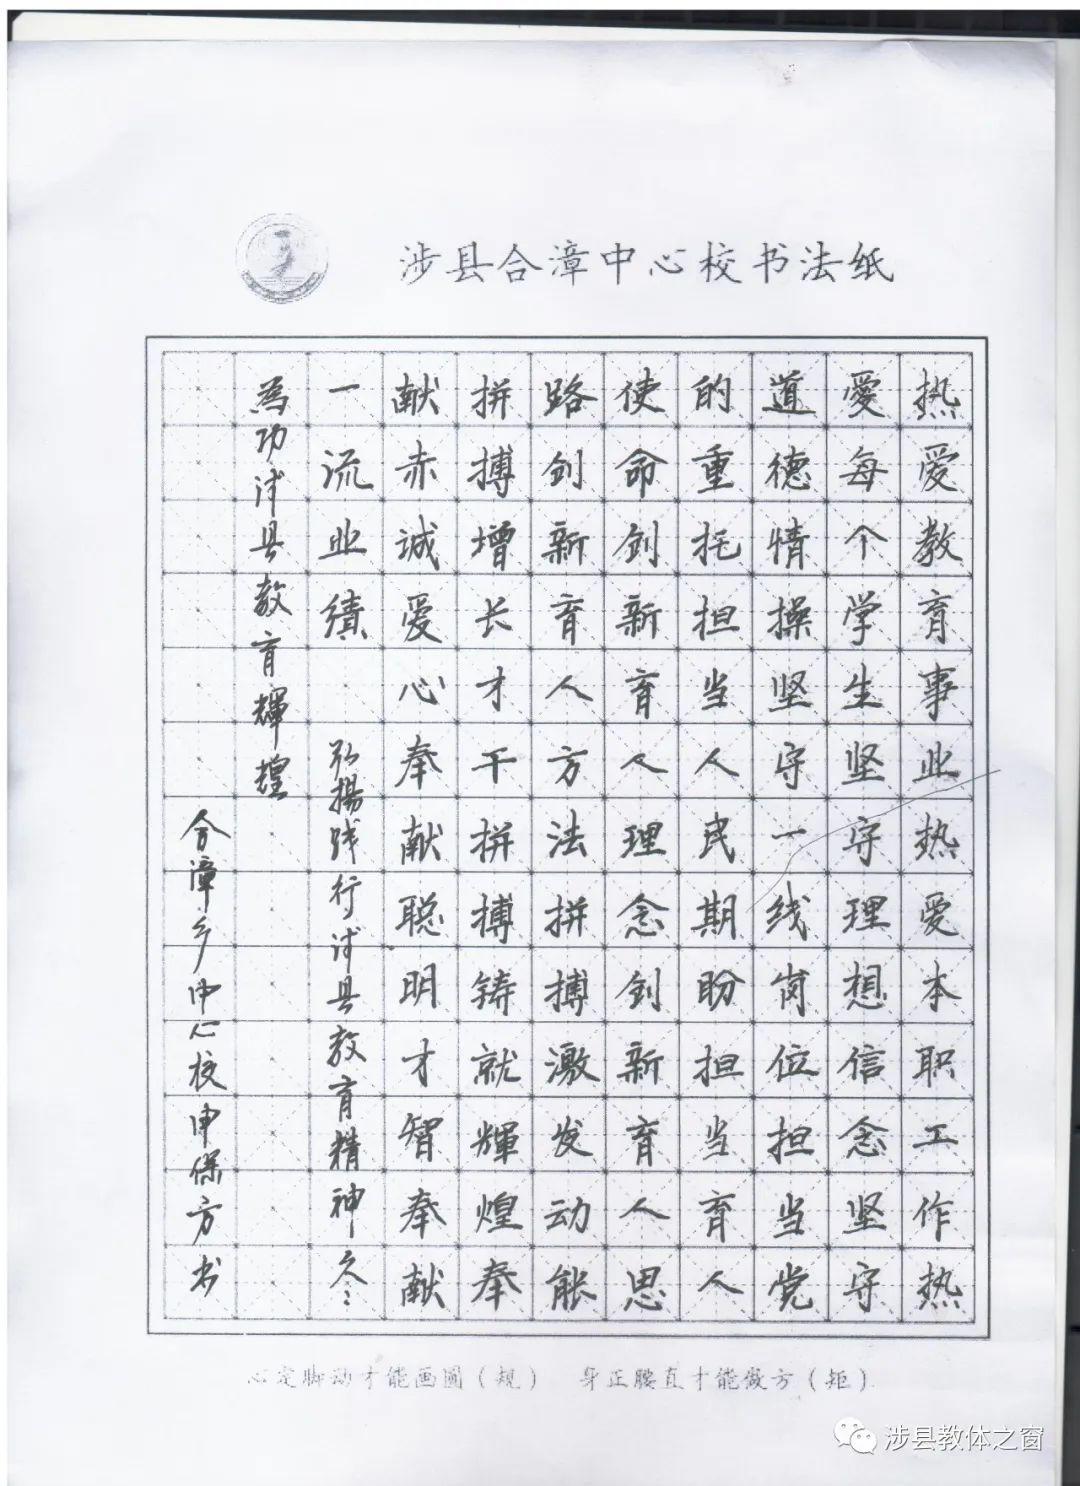 涉县合漳中心校书法纸
热爱教育事业热爱本职工作热
愛每个学生坚守理想信念坚守
道德情操坚守一线岗位担当党
的重托担当人民期盼担当育人
使命创新育人理念创新育人思
路创新育人方法拼搏激发动能
拼搏增长才干拼搏铸就輝煌奉
献赤诚爱心奉献聪明才智奉献
一流业绩 弘揚践行涉县教育精神
為功涉县教育輝煌
合漳乡中心校申保方书
心定脚动才能画圓（规） 身正腰直才能做方（矩）
涉县教体之窗